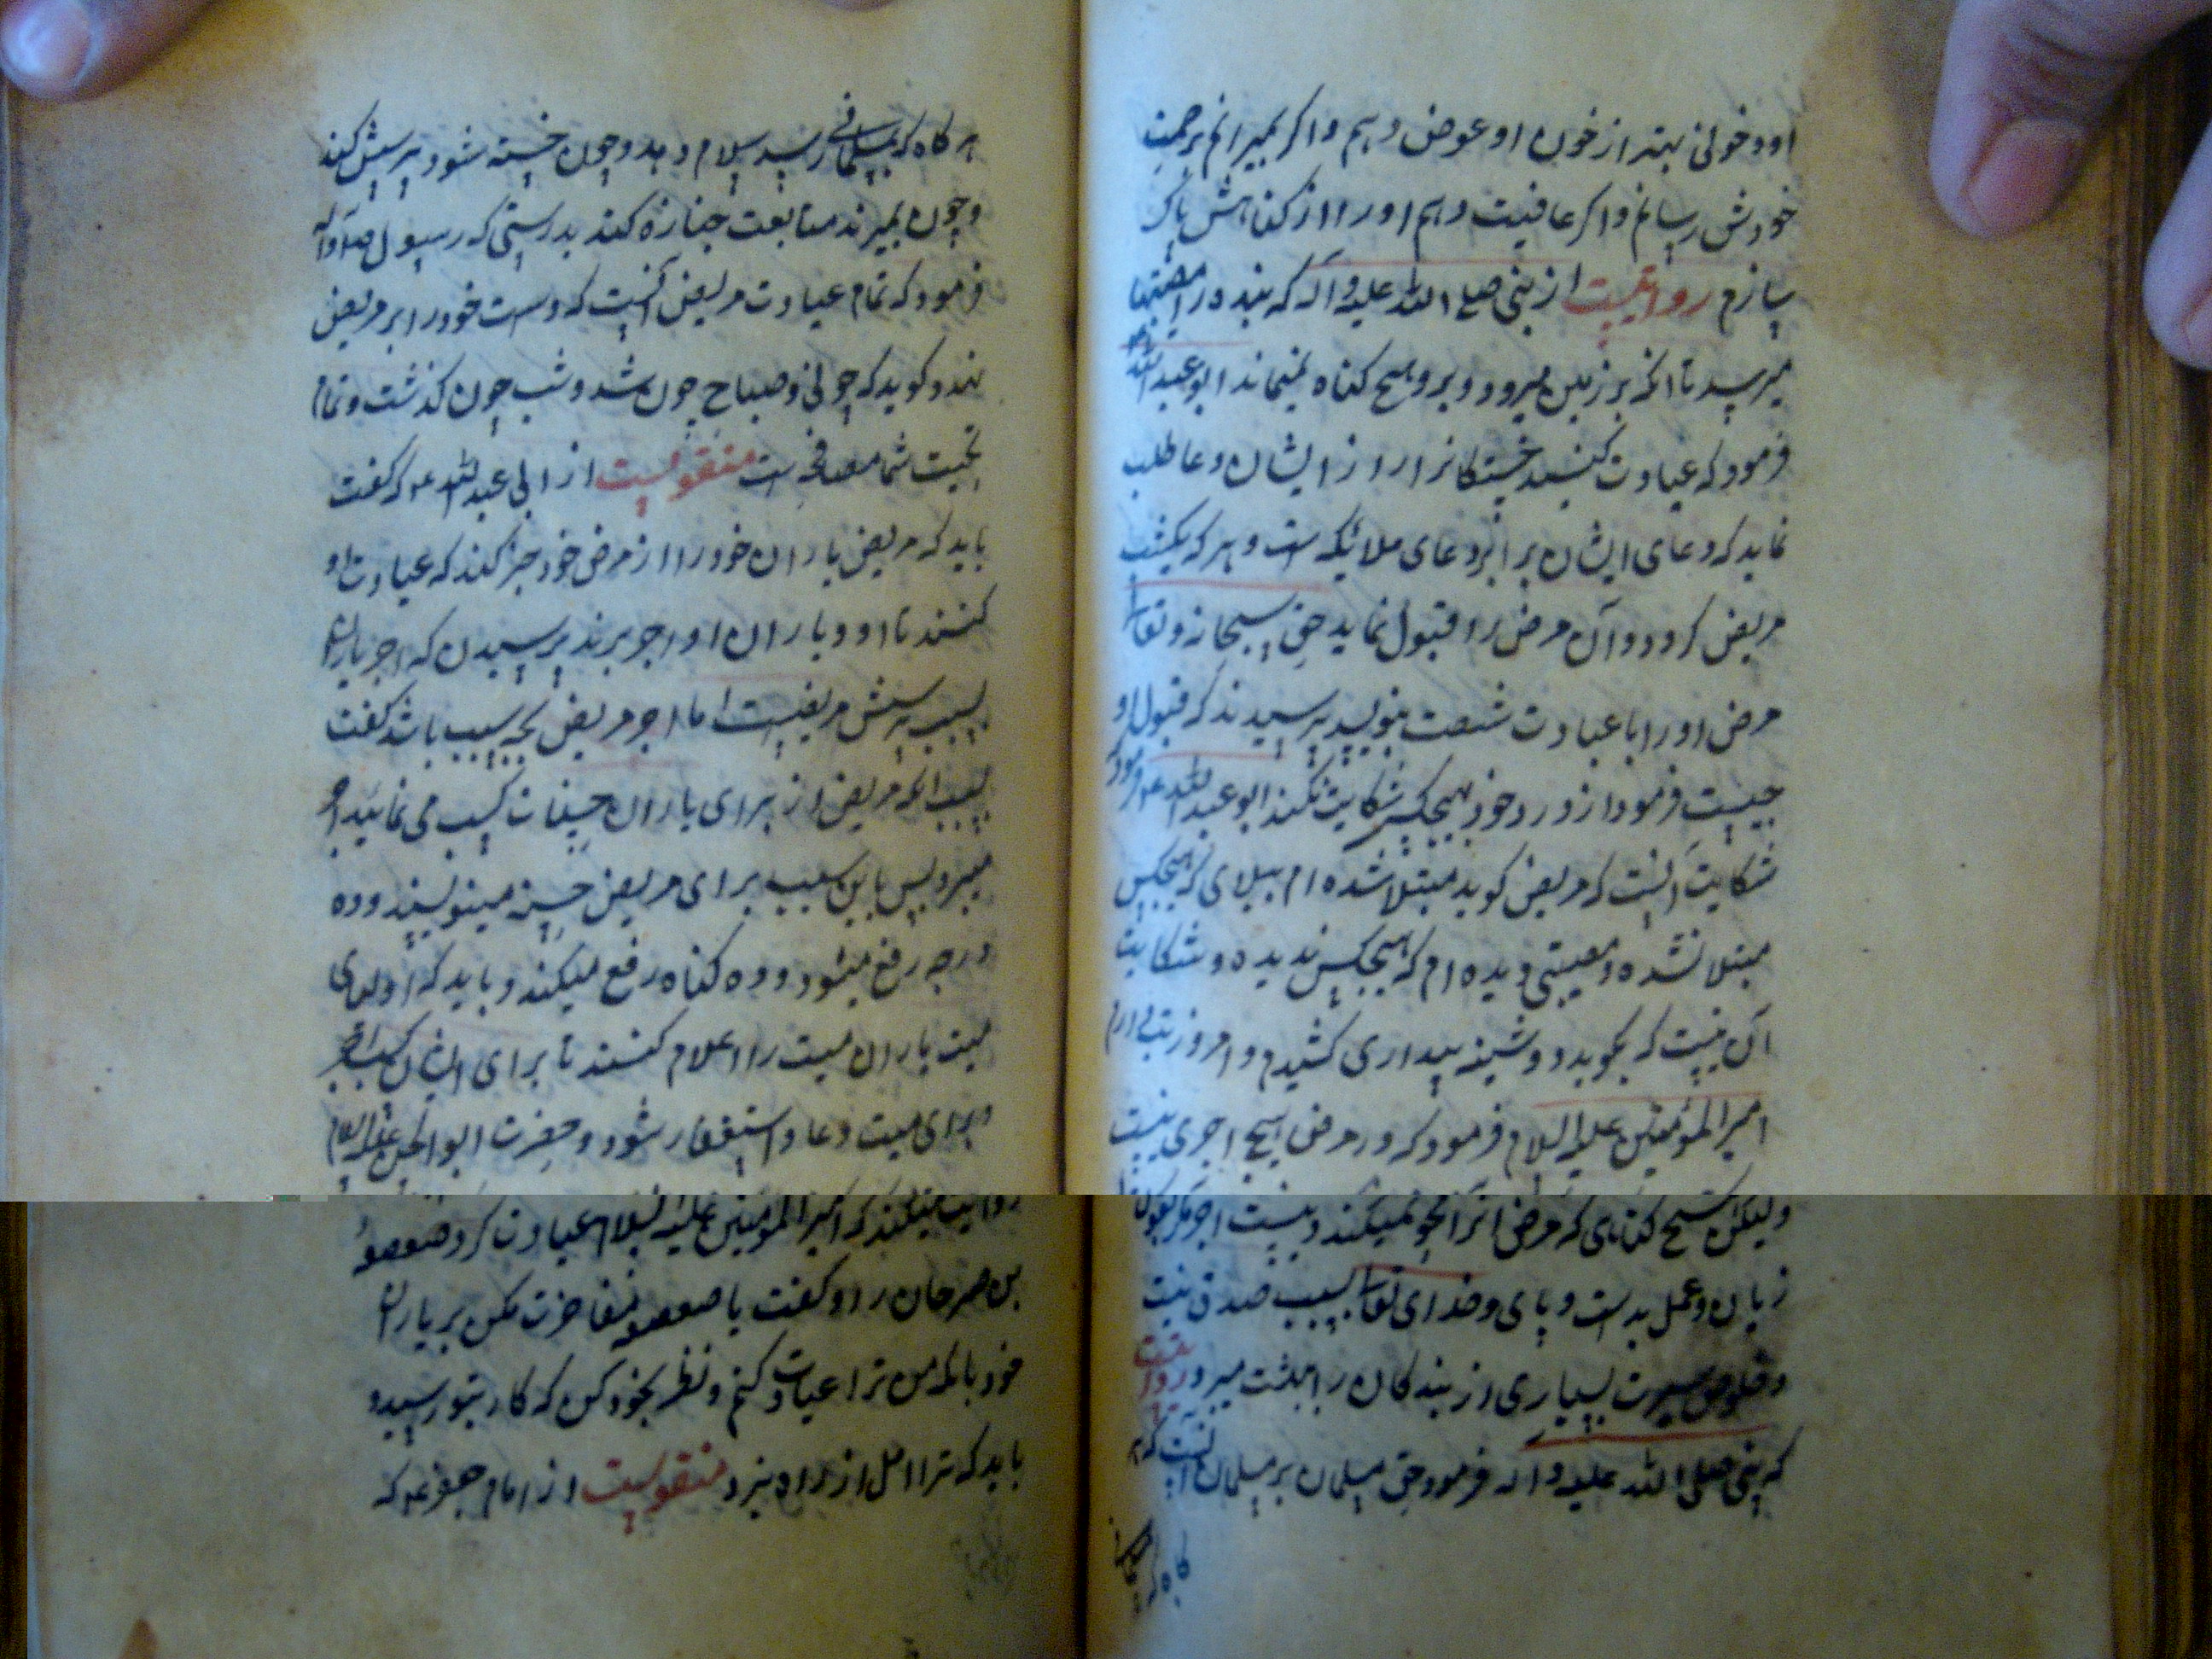 او و خونی بهتر از خون او عوض دهم و اکر بمیرانم برحمت
خودش رسانم و اکر عافیت دهم او را از کناهش پاک
سازم روایتست از نبی صلی الله علیه و آله که بنده را مصیبتها
میرسد تا انکه بر زمین میرود و برو هیچ کناه نمیماند ابو عبد الله
فرمود که عیادت کنید خستکانرا و از ایشان دعا طلب
نماید که دعای ایشان برابر دعای ملائکه است و هر که یکشب
مریض کردد و آن مرض را قبول نماید حق سبحانه و تعالی
مرض او را با عبادت شصت بنویسد پرسیدند که قبول او
چیست فرمود از درد خود بهیچکس شکایت نکند ابو عبد الله ع فرمود که
شکایت آنست که مریض کوید مبتلا شده ام ببلای که هیچکس
مبتلا نشده و مصیبتی دیده ام که هیچکس ندیده و شکایت
آن نیست که بکوید دوشینه بیداری کشیدم و امروز تب دارم
امیر المؤمنین علیه السلام فرمود که در مرض هیچ اجری نیست
ولیکن هیچ کناهی که مرض انرا محو نمیکند و نیست اجر مکر بقول
زبان و عمل بدست و پای و خدای تعالی بسبب صدق نیت
و خلوص سیرت بسیاری از بندکان را ببهشت میبرد روایتست
که نبی صلی الله علیه و آله فرمود حق مسلمان بر مسلمان آنست که هر
هر کاه که بمسلمانی رسد سلام دهد و چون خسته شود پرسش کند
و چون بمیرند متابعت جنازه کند بدرستی که رسول صلی و آله
فرمود که تمام عیادت مریض آنست که دست خود را بر مریض
نهد و کوید که چونی و صباح چون شد و شب چون کذشت و تمام
تحیت شما مصافحه است منقولست از ابی عبد الله ع که کفت
باید که مریض یاران خود را از مرض خود خبر کند که عیادت او
کنند تا او و یاران او اجر برند پرسیدن که اجر یاران
بسبب پرسش مریضست اما اجر مریض بچه سبب باشد کفت
بسبب انکه مریض از برای یاران حسنات کسب می نماید اجر
میبرد پس باین سبب برای مریض حسنه مینویسند و ده
درجه رفع میشود و ده کناه رفع میکند و باید که اولیای
میت یاران میت را اعلام کنند تا برای ایشان کسب اجر
و برای میت دعا و استغفار شود و حضرت ابو الحسن علیه السلام
روایت میکند که امیر المؤمنین علیه السلام عیادت کرد صعصعه
بن صرحان را و کفت یا صعصعه مفاخرت مکن بر یاران
خود بانکه من ترا عیادت کنم و نظر بخود کن که کار بتو رسید و
باید که ترا امل از راه نبرد منقولست از امام جعفر ع که